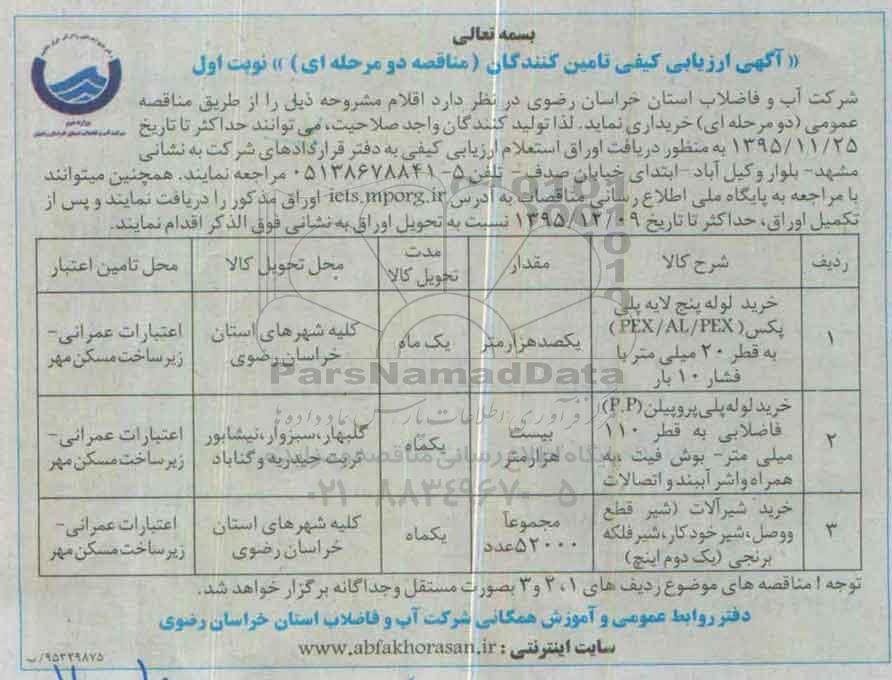 بسمه تعالی
« آگهی ارزیابی کیفی تامین کنندگان (مناقصه دو مرحله ای) » نوبت اول
شرکت آب و فاضلاب استان خراسان رضوی در نظر دارد اقلام مشروحه ذیل را از طریق مناقصه
عمومی (دو مرحله ای) خریداری نماید. لذا تولید کنندگان واجد صلاحیت، می توانند حداکثر تا تاریخ
۱۳۹۵/۱۱/۲۵ به منظور دریافت اوراق استعلام ارزیابی کیفی به دفتر قراردادهای شرکت به نشانی
مشهد- بلوار وکیل آباد -ابتدای خیابان صدف- تلفن ۵-۰۵۱۳۸۶۷۸۸۴۱ مراجعه نمایند. همچنین میتوانند
با مراجعه به پایگاه ملی اطلاع رسانی مناقصات به آدرس iets.mporg.ir اوراق مذکور را دریافت نمایند و پس از
تکمیل اوراق، حداکثر تا تاریخ ۱۳۹۵/۱۲/۰۹ نسبت به تحویل اوراق به نشانی فوق الذکر اقدام نمایند.
ردیف شرح کالا مقدار مدت تحویل کالا محل تحویل کالا محل تامین اعتبار
۱ خرید لوله پنج لایه پلی
پکس( PEX/AL/PEX )
به قطر ۲۰ میلی متر با
فشار ۱۰ بار
یکصدهزارمتر
یک ماه
کلیه شهرهای استان
خراسان رضوی
اعتبارات عمرانی-
زیرساخت مسکن مهر
۲ خرید لوله پلی پروپیلن (P.P)
فاضلابی به قطر ۱۱۰
میلی متر- بوش فیت ،به
همراه واشر آببند و اتصالات
بیست
هزارمتر
یکماه
گلبهار،سبزوار،نیشابور
تربت حیدریه و گناباد
اعتبارات عمرانی-
زیرساخت مسکن مهر
۳ خرید شیرآلات (شیر قطع
ووصل،شیرخودکار،شیرفلکه
برنجی (یک دوم اینچ)
مجموعاً
۵۲۰۰۰عدد
یکماه
کلیه شهرهای استان
خراسان رضوی
اعتبارات عمرانی-
زیرساخت مسکن مهر
توجه ! مناقصه های موضوع ردیف های ۱، ۲ و ۳ بصورت مستقل وجداگانه برگزار خواهد شد.
دفتر روابط عمومی و آموزش همگانی شرکت آب و فاضلاب استان خراسان رضوی
سایت اینترنتی : www.abfakhorasan.ir
۹۵۳۳۹۸۷۵/ب
ParsNamadData
۰۲۱-۸۸۳۴۹۶۷۰-۵